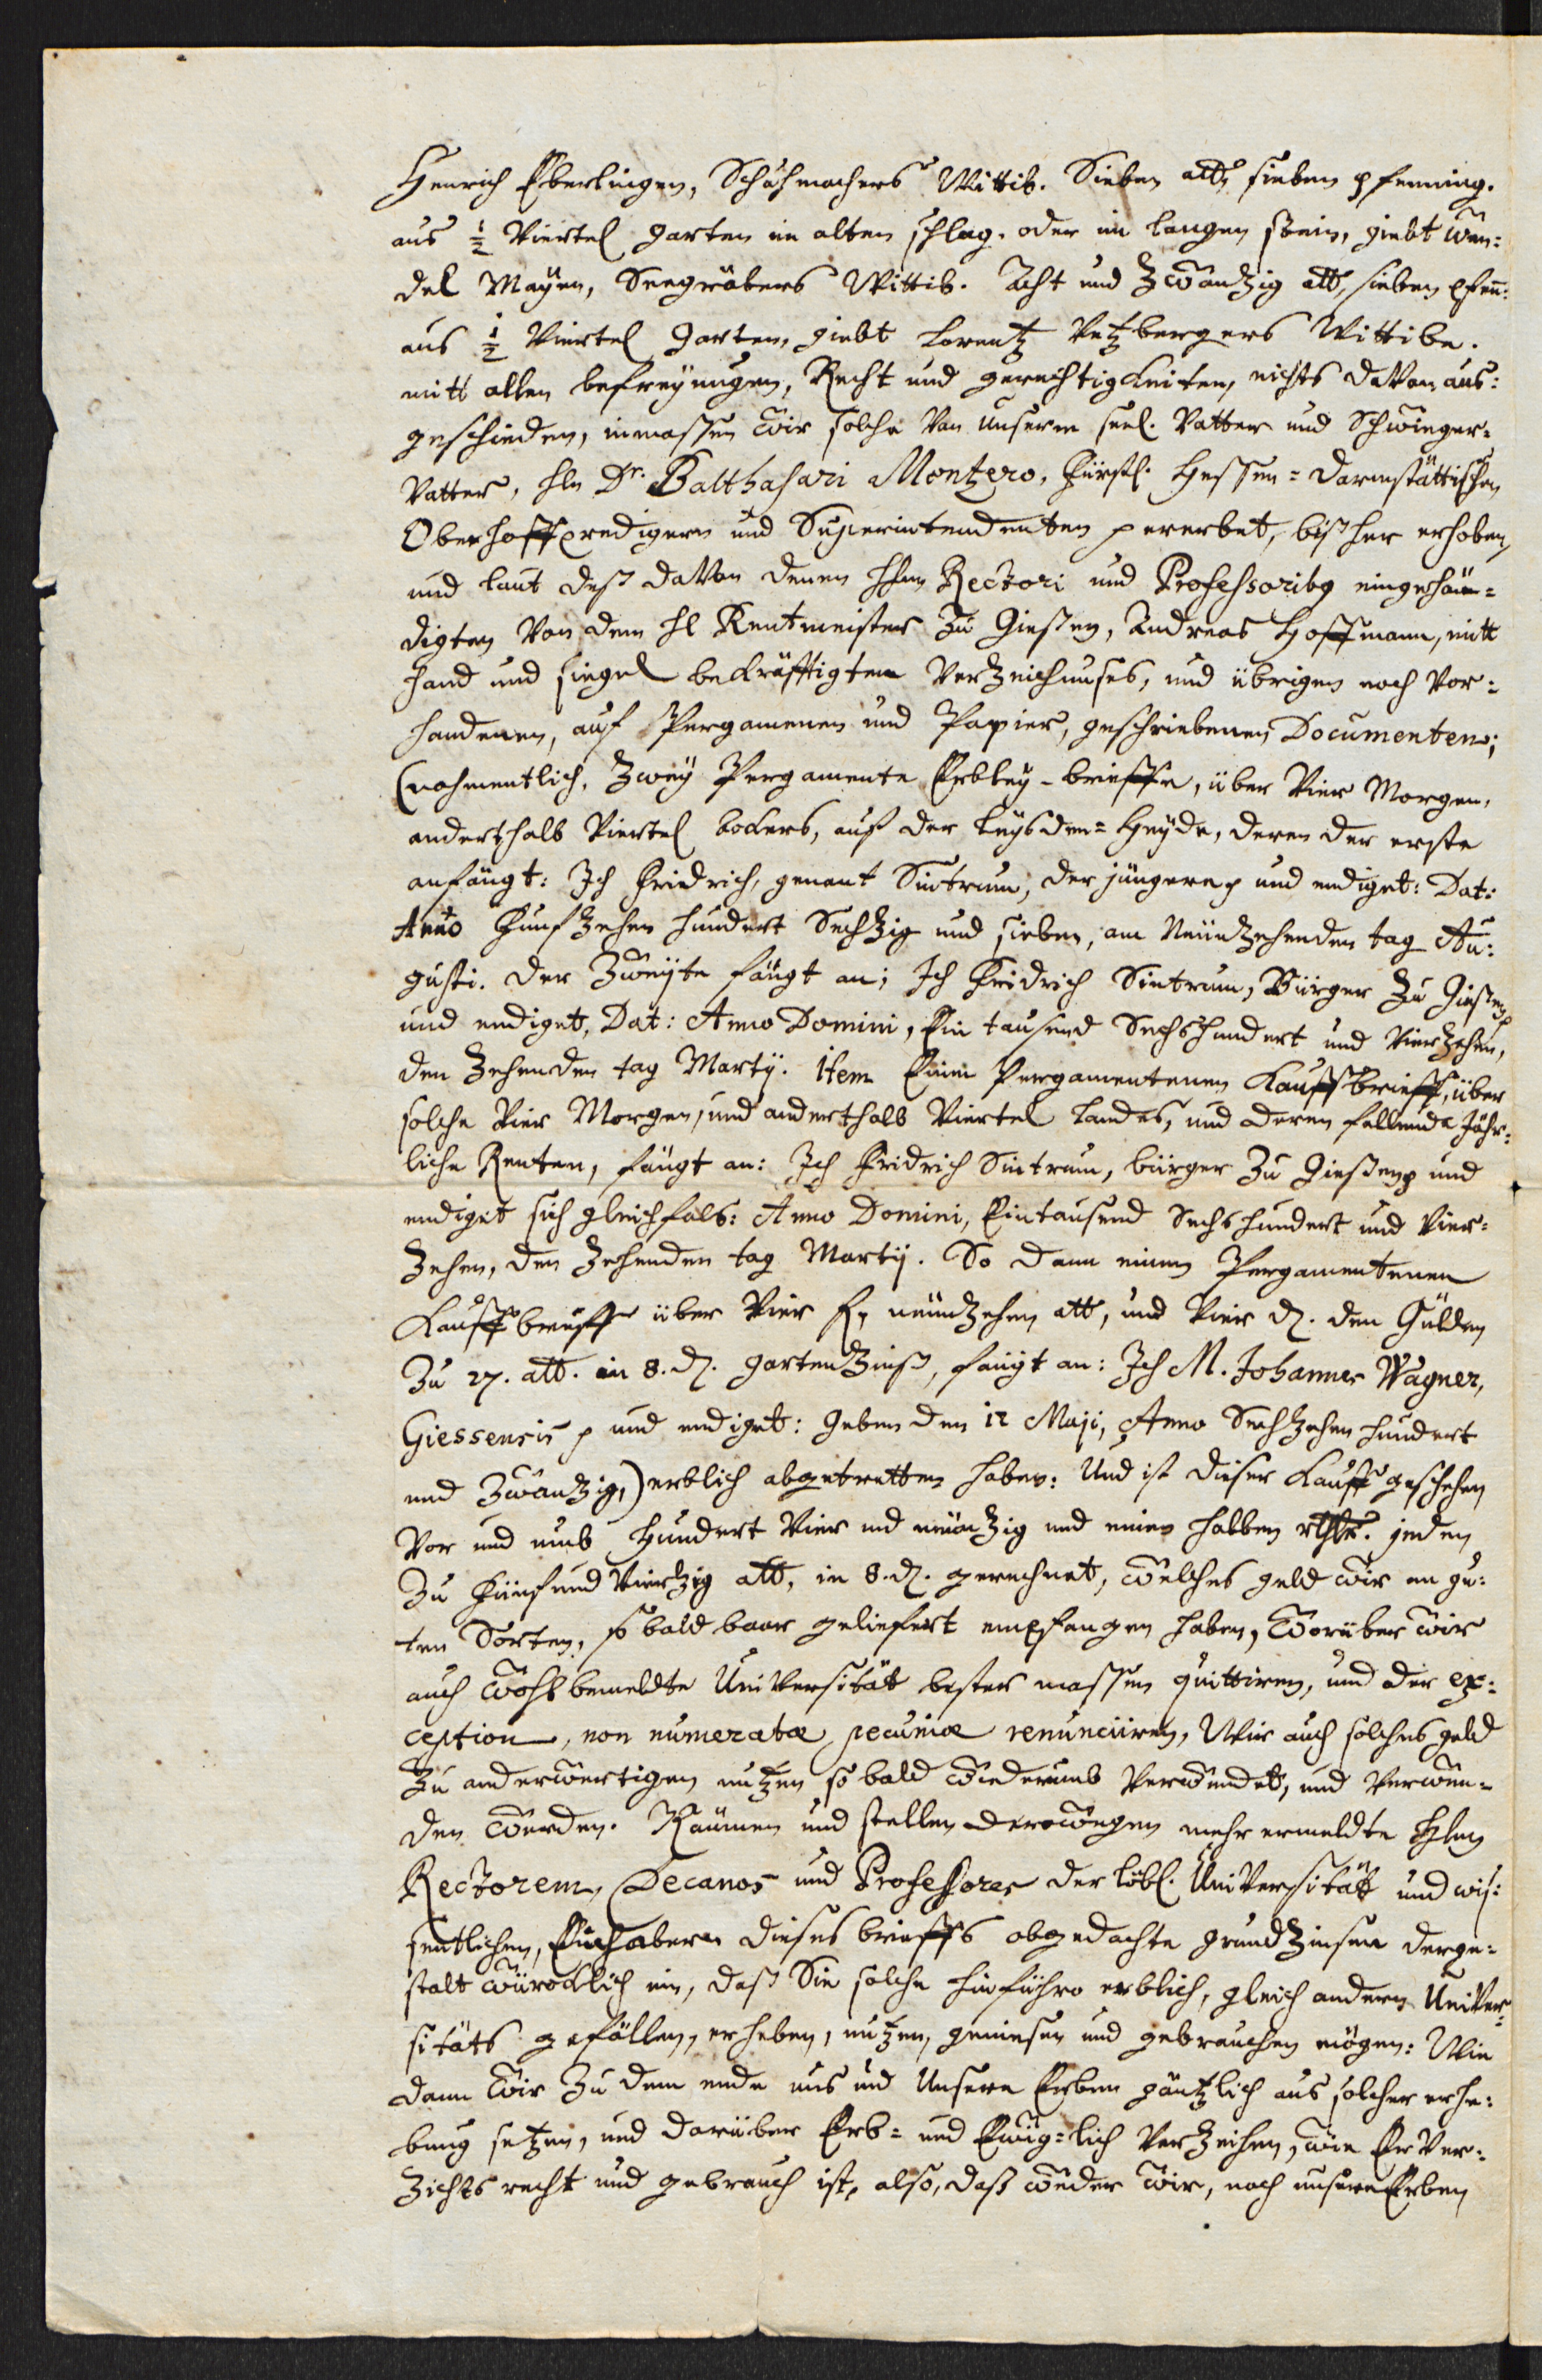 Henrich Eberlingen, Schuhmachers Wittib. Sieben alb, sieben pfenning.
aus ½ Viertel garten im alten schlag. oder im langen stein, giebt Wen:
del Mayen, Seegräbers Wittib. Acht und Zwantzig alb, sieben pfen:
aus ½ Viertel garten, giebt Lorentz Vetzbergers Wittibe.
mitt allen befreyungen, Recht und gerechtigkeiten, nichts davon aus:
geschieden, inmassen wir solche von unserm seel. Vatter und Schwieger-
Vatter, Hln Dr. Balthasari Mentzero, Fürstl. Hessen=Darmstättischen
Oberhoffpredigern und Superintendenten p ererbet, bißher erhoben,
und laut deß davon denen HHln Rectori und Professoribg eingehän=
digten von dem Hl Rentmeister zu Giessen, Andreas Hoffmann, mitt
hand und siegel bekräfftigten Verzeichnuses, und übrigen noch vor:
handenen, auf Pergamenen und Papier, geschriebenen Documenten;
(nahmentlich, Zwey Pergamente Erbley-brieffe, über Vier Morgen,
anderthalb Viertel ackers, auf der Leysden=Heyde, deren der erste
anfängt: Ich Fridrich, genant Sintrum, der jüngere p und endiget: Dat:
Anno Funfzehen hundert Sechzig und sieben, am Neunzehenden tag Au:
gusti. der Zweyte fängt an; Ich Fridrich Sintrum, Bürger zu Giessen p
und endiget, Dat: Anno Domini, Ein tausend Sechshundert und Vierzehen,
den Zehenden tag Martij. Item Einen Pergamentenen Kauffbrieff, über
solche Vier Morgen, und anderthalb Viertel Landes, und deren fallende Jähr:
liche Renten, fängt an: Ich Fridrich Sintrum, bürger zu Giessen p und
endiget sich gleichfals: Anno Domini, Eintausend Sechshundert und Vier=
Zehen, den Zehenden tag Martij. So dann einen Pergamentenen
Kauffbrieff über Vier fl, neunzehen alb, und Vier d. den Gülden
zu 27. alb. in 8. d. gartenZinß, fängt an: Ich M. Johannes Wagner,
Giessensis p und endiget: geben den 12 Maji, Anno Sechzehen hundert
und Zwantzig,) erblich abgetretten haben: Und ist dieser Kauff geschehen
Vor und umb Hundert Vier und neuntzig und einen halben rthlr. jeden
zu Fünf und Viertzig alb, in 8. d. gerechnet, welches geld wir an gu:
ten Sorten, so bald baar geliefert empfangen haben, Worüber wir
auch wohl bemeldte Universität bester massen quittiren, und der ex:
ception, non numeratæ pecuniæ renunciiren, Wir auch solches geld
zu anderwertigen nutzen so bald wiederumb verwendet, und verwen=
den werden. Räumen und stellen derowegen mehr ermeldte Hhln
Rectorem, Decanos und Professores der löbl. Universität und wis:
sentlichen, Einhabern dieses brieffs obgedachte grundZinsen derge=
stalt würcklich ein, daß Sie solche hinführo erblich, gleich andern Univer=
sitäts gefällen, erheben, nutzen, geniesen und gebrauchen mögen: Wie
dann wir zu dem ende uns und Unsere Erben gäntzlich aus solcher erhe:
bung setzen, und darüber Erb= und Ewig=lich verzeihen, wie Erb Ver:
zichts recht und gebrauch ist, also, daß weder wir, noch unsere Erben